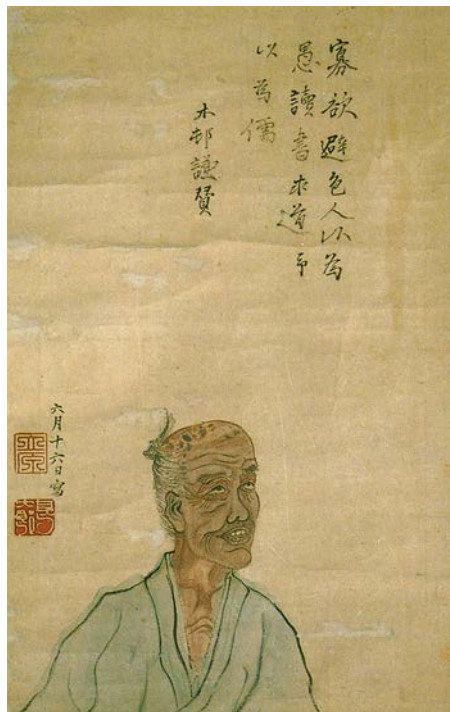 寡欲避色人以為
愚讀書求道予
以為儒
木邨謙贊
六月十六日寫